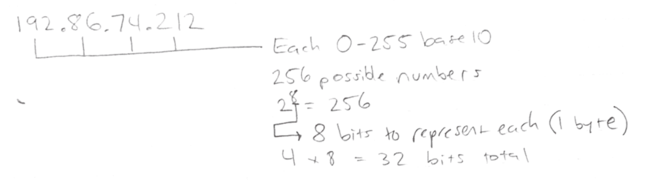 192.86.74.212
Each 0-255 base 10
256 possible numbers
2^8 = 256
8 bits to represent each (1 byte)
4 * 8 = 32 bits total